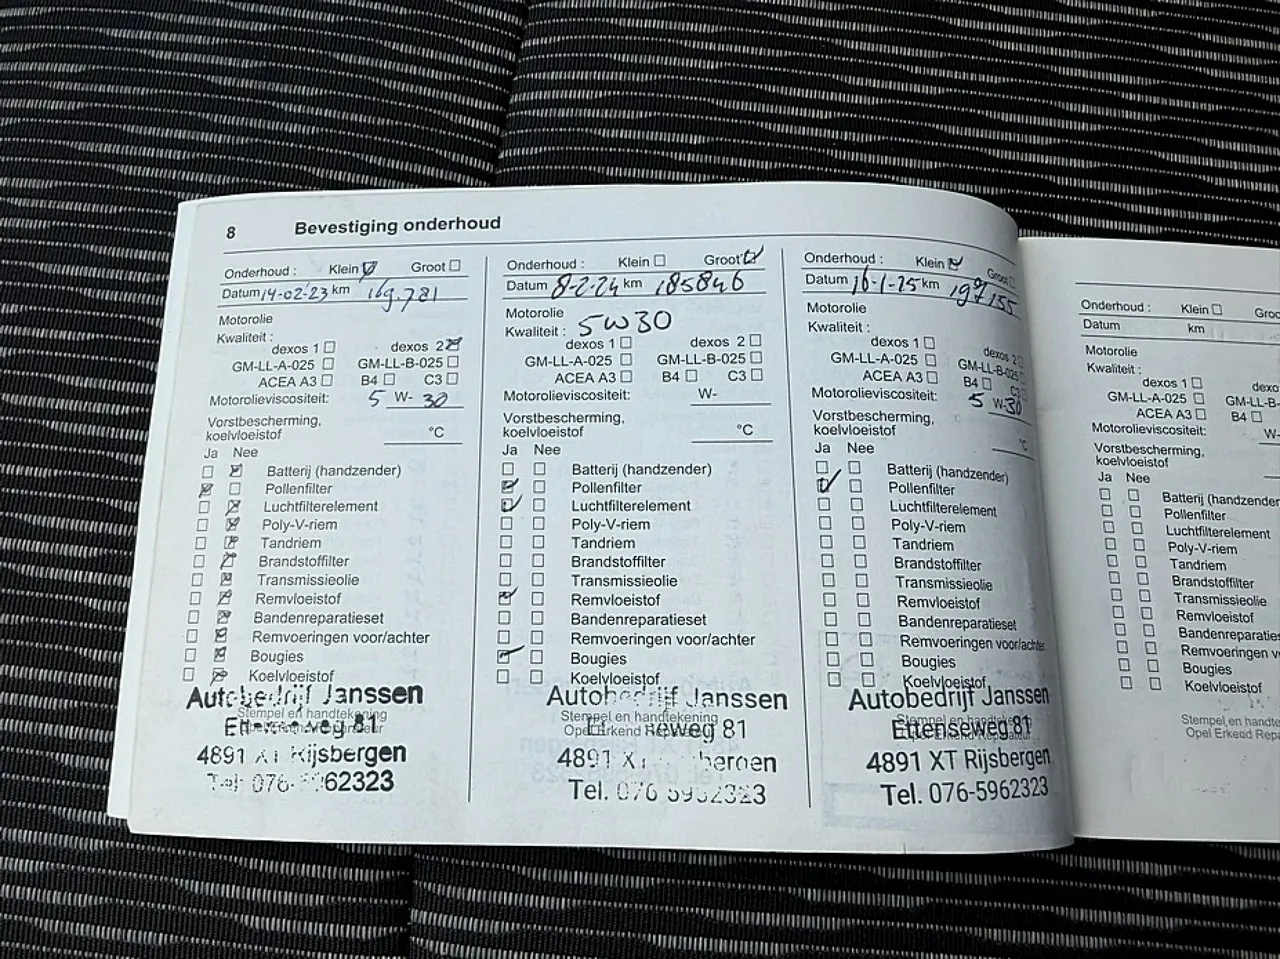 8 Bevestiging onderhoud
Onderhoud : Klein Groot
Datum 14-02-23 km 169.781
Motorolie
Kwaliteit :
dexos 1 dexos 2
GM-LL-A-025 GM-LL-B-025
ACEA A3 B4 C3
Motorolieviscositeit: 5 W- 30
Vorstbescherming,
koelvloeistof °C
Ja Nee
Batterij (handzender)
Pollenfilter
Luchtfilterelement
Poly-V-riem
Tandriem
Brandstoffilter
Transmissieolie
Remvloeistof
Bandenreparatieset
Remvoeringen voor/achter
Bougies
Koelvloeistof
Autobedrijf Janssen
Stempel en handtekening
Ettenseweg 81
4891 XT Rijsbergen
Tel. 076-5962323
Onderhoud : Klein Groot
Datum 8-2-24 km 185846
Motorolie
Kwaliteit : 5W30
dexos 1 dexos 2
GM-LL-A-025 GM-LL-B-025
ACEA A3 B4 C3
Motorolieviscositeit: W-
Vorstbescherming,
koelvloeistof °C
Ja Nee
Batterij (handzender)
Pollenfilter
Luchtfilterelement
Poly-V-riem
Tandriem
Brandstoffilter
Transmissieolie
Remvloeistof
Bandenreparatieset
Remvoeringen voor/achter
Bougies
Koelvloeistof
Autobedrijf Janssen
Stempel en handtekening
Ettenseweg 81
Opel Erkend Reparateur
4891 XT Rijsbergen
Tel. 076 5962323
Onderhoud : Klein Groot
Datum 16-1-25 km 197155
Motorolie
Kwaliteit :
dexos 1 dexos 2
GM-LL-A-025 GM-LL-B-025
ACEA A3 B4 C3
Motorolieviscositeit: 5 W-30
Vorstbescherming,
koelvloeistof °C
Ja Nee
Batterij (handzender)
Pollenfilter
Luchtfilterelement
Poly-V-riem
Tandriem
Brandstoffilter
Transmissieolie
Remvloeistof
Bandenreparatieset
Remvoeringen voor/achter
Bougies
Koelvloeistof
Autobedrijf Janssen
Ettenseweg 81
4891 XT Rijsbergen
Tel. 076-5962323
Onderhoud : Klein Groo
Datum km
Motorolie
Kwaliteit :
dexos 1 dexo
GM-LL-A-025 GM-LL-B
ACEA A3 B4
Motorolieviscositeit: W-
Vorstbescherming,
koelvloeistof
Ja Nee
Batterij (handzender
Pollenfilter
Luchtfilterelement
Poly-V-riem
Tandriem
Brandstoffilter
Transmissieolie
Remvloeistof
Bandenreparatiese
Remvoeringen v
Bougies
Koelvloeistof
Stempel en handte
Opel Erkend Repa